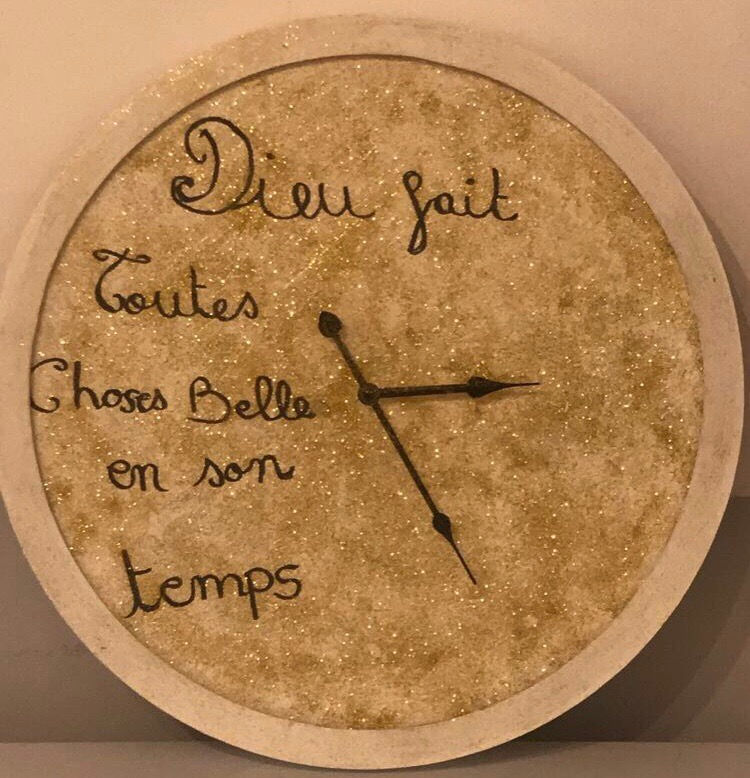 Dieu fait
Toutes
Choses Belle
en son
temps